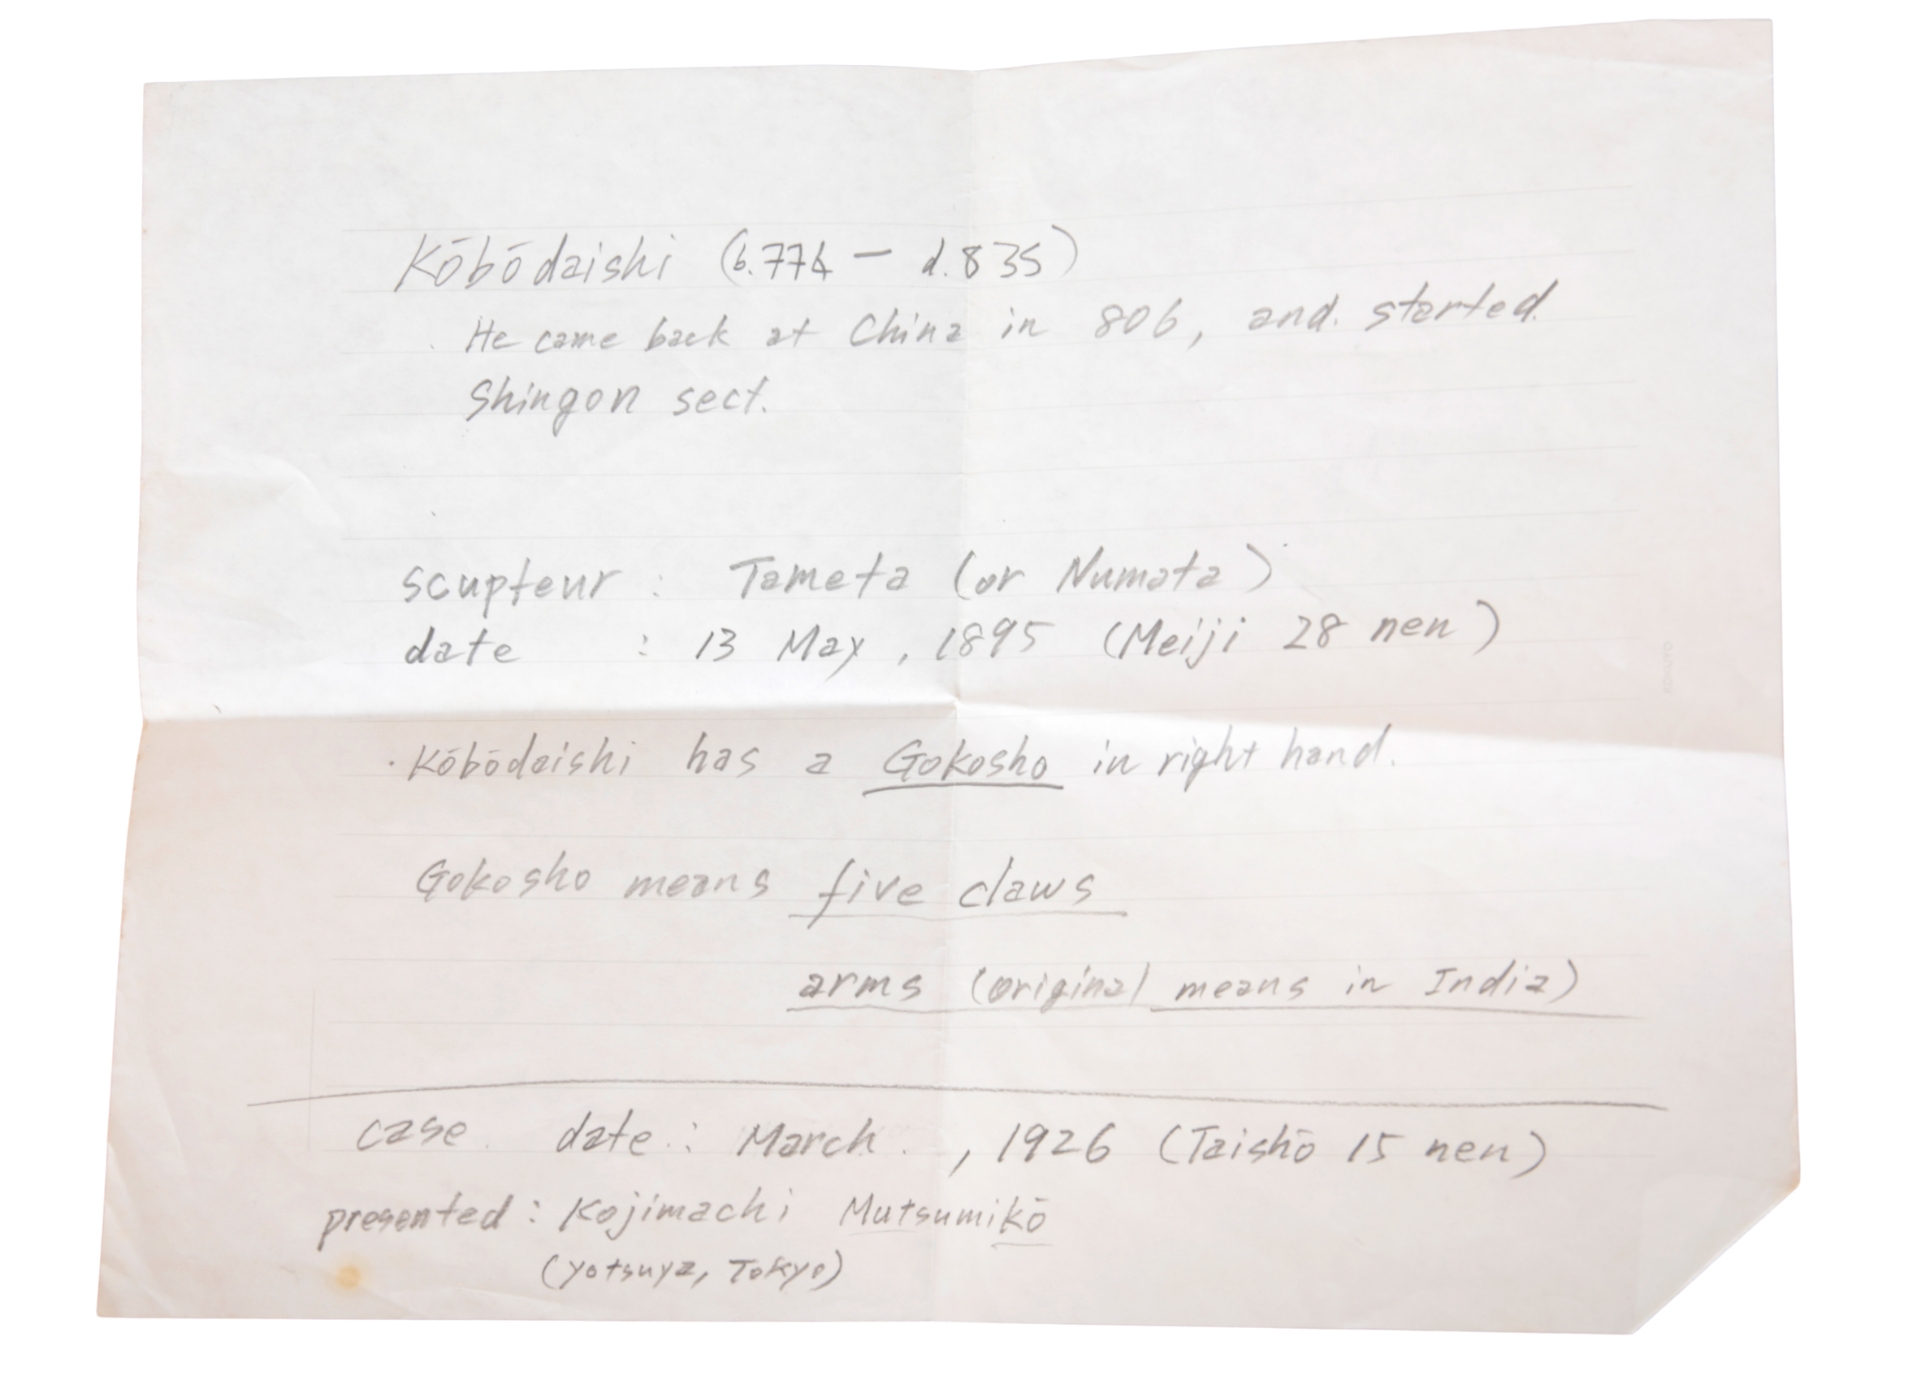 Kōbōdaishi (b.774 — d.835)
He came back at China in 806, and started
Shingon sect.
scupteur : Tameta (or Numata)
date : 13 May, 1895 (Meiji 28 nen)
· Kōbōdaishi has a Gokosho in right hand.
Gokosho means five claws
arms (original means in India)
case date : March , 1926 (Taishō 15 nen)
presented : Kojimachi Mutsumikō
(Yotsuya, Tokyo)